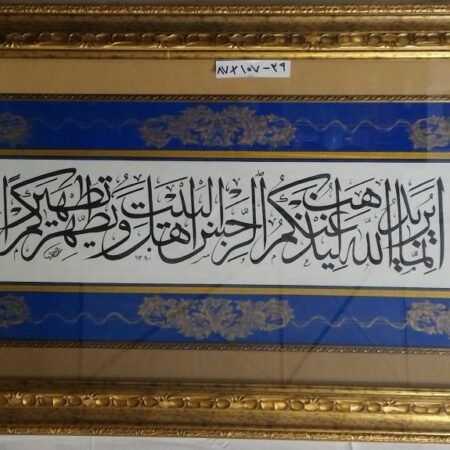 ۸۷×۱۰۷-۳۹
اِنَّما يُريدُ اللّهُ لِيُذهِبَ عَنكُمُ الرِّجسَ اَهلَ البَيتِ وَ يُطَهِّرَكُم تَطهيرًا
۱۳۸۰